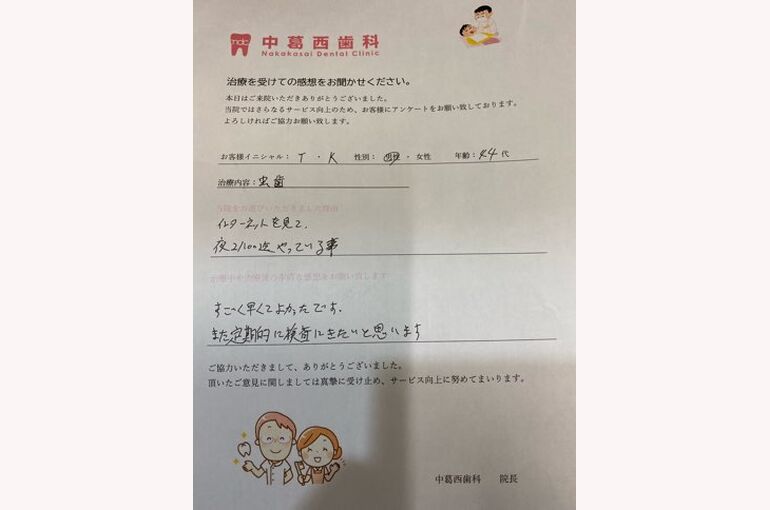 ndc 中葛西歯科
Nakakasai Dental Clinic
治療を受けての感想をお聞かせください。
本日はご来院いただきありがとうございました。
当院ではさらなるサービス向上のため、お客様にアンケートをお願い致しております。
よろしければご協力お願い致します。
お客様イニシャル： T ・ K 性別： 男性 ・ 女性 年齢：44 代
治療内容：虫歯
当院をお選びいただきました理由
インターネットを見て、
夜21:00迄やっている事
治療中や治療後の率直な感想をお願い致します
すごく早くてよかったです。
また定期的に検査にきたいと思います
ご協力いただきまして、ありがとうございました。
頂いたご意見に関しましては真摯に受け止め、サービス向上に努めてまいります。
中葛西歯科 院長